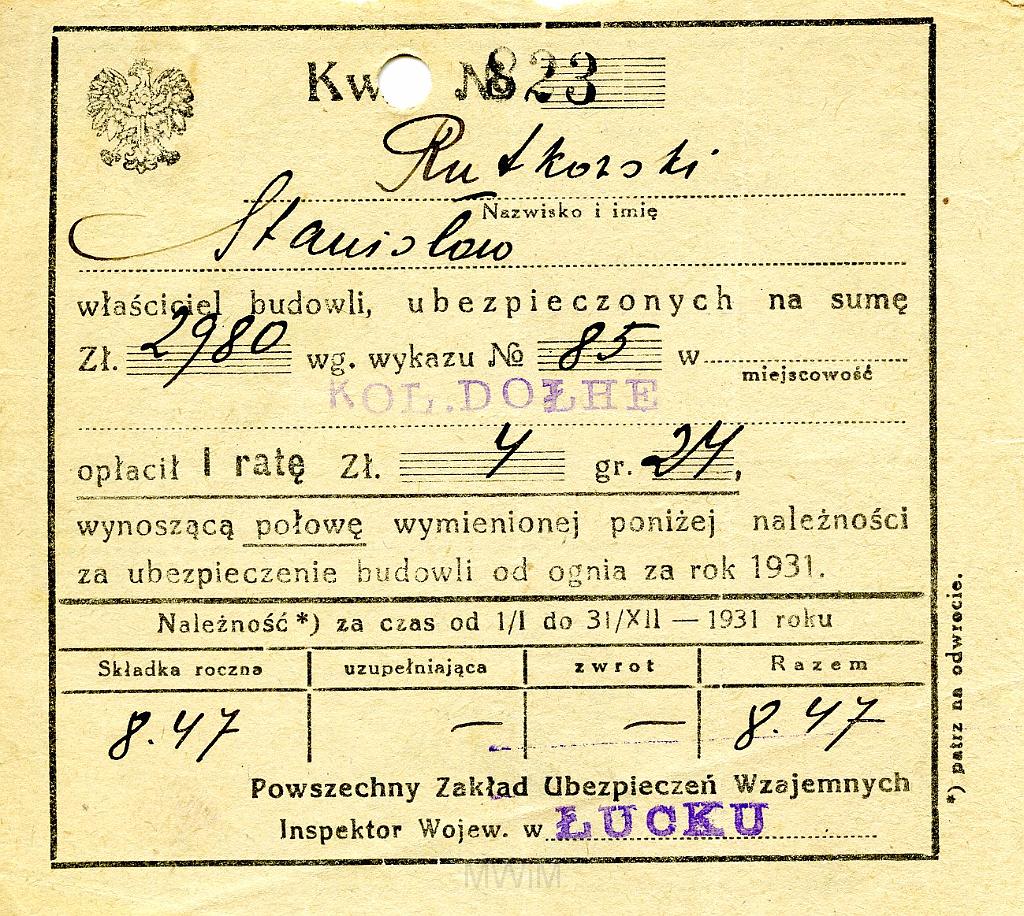 Kw № 823
Rutkorski
Nazwisko i imię
Stanisław
właściciel budowli, ubezpieczonych na sumę
Zł. 2980 wg. wykazu № 85 w
miejscowość
KOL. DOŁHE
opłacił I ratę Zł. 4 gr. 24,
wynoszącą połowę wymienionej poniżej należności
za ubezpieczenie budowli od ognia za rok 1931.
Należność *) za czas od 1/I do 31/XII — 1931 roku
Składka roczna uzupełniająca zwrot Razem
8.47 — — 8.47
Powszechny Zakład Ubezpieczeń Wzajemnych
Inspektor Wojew. w ŁUCKU
*) patrz na odwrocie.
MWIM